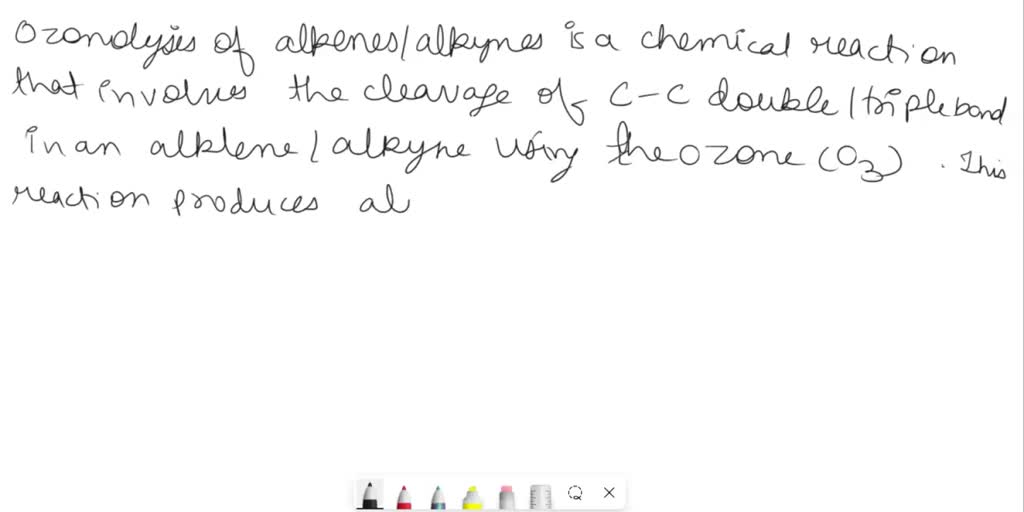 Ozonolysis of alkenes/alkynes is a chemical reaction
that involves the cleavage of C-C double/triple bond
in an alklene/alkyne using the ozone (O3). This
reaction produces al